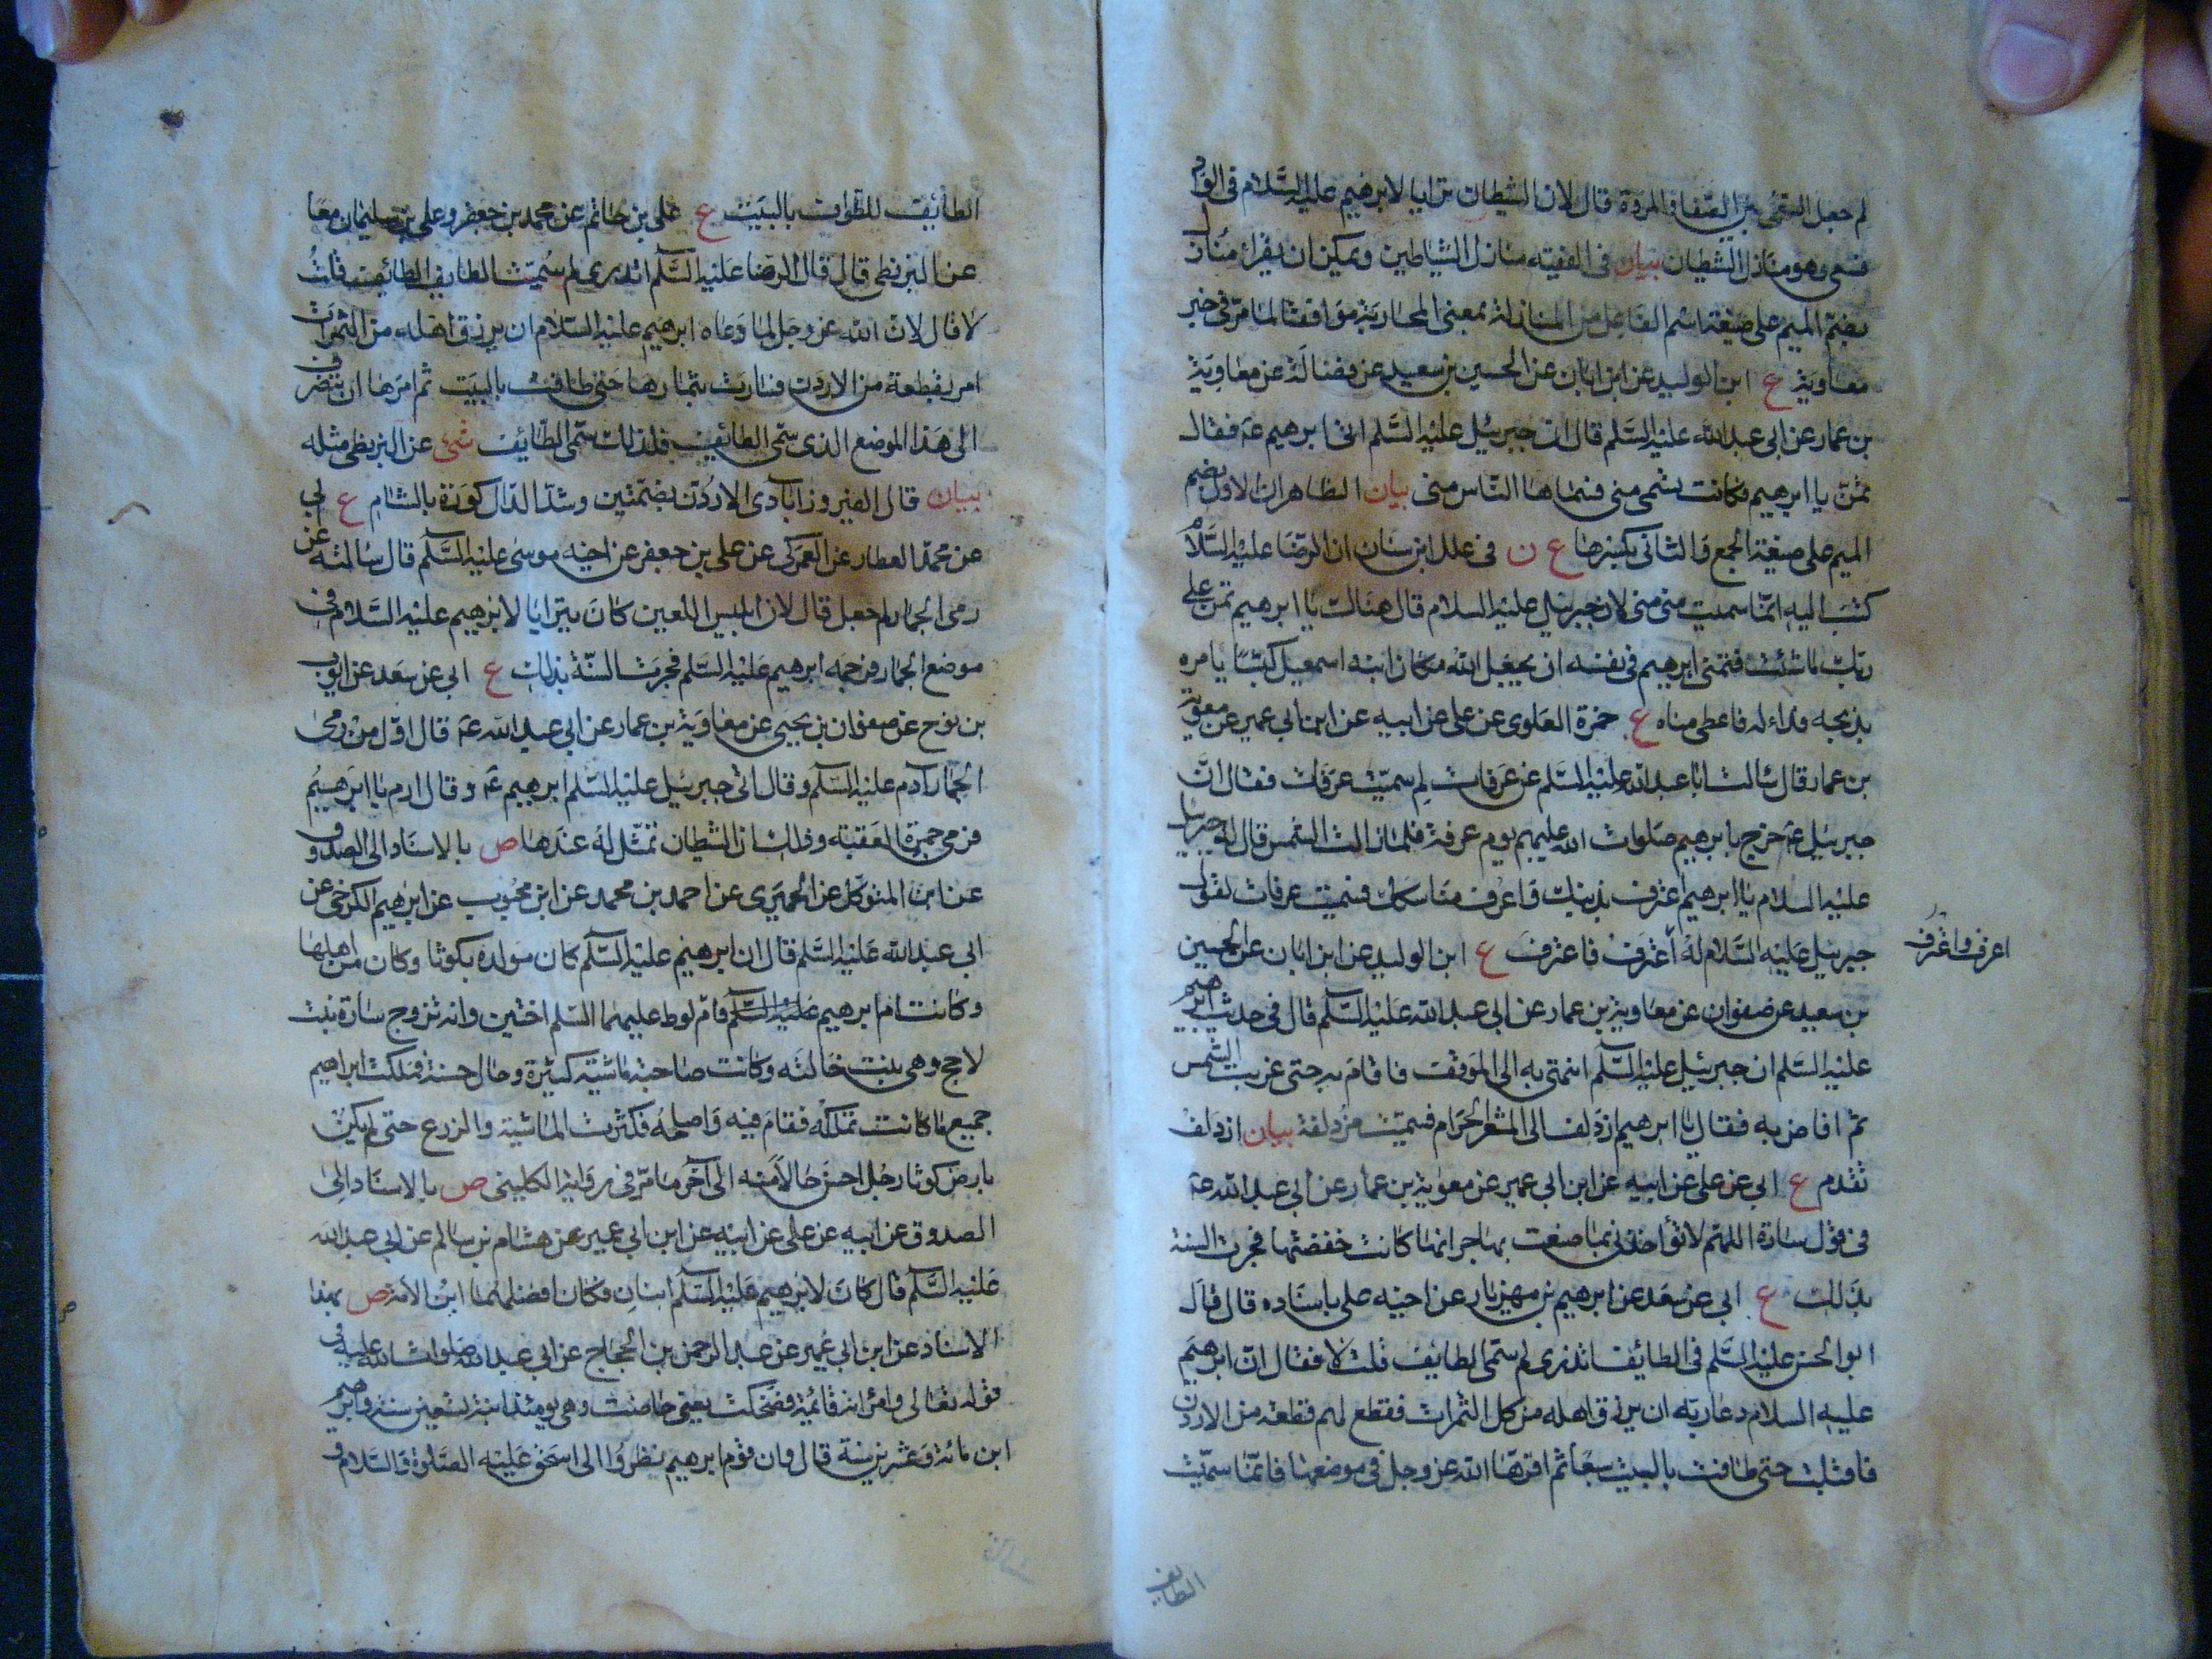 لم جعل السعى بين الصفا والمروة قال لان الشيطان ترايا لابرهيم عليه السلام فى الوادى
فسعى وهو منازل الشيطان بيان فى الفقيه منازل الشياطين ويمكن ان يقرأ منازل
بضم الميم على صيغة اسم الفاعل من المنازلة بمعنى المحاربة موافقا لما مر فى خبر
معاوية ع ابن الوليد عن ابن ابان عن الحسين بن سعيد عن فضالة عن معاوية
بن عمار عن ابى عبد الله عليه السلم قال ان جبرئيل عليه السلم اتى ابرهيم عه فقال
تمن يا ابرهيم فكانت تسمى منى فسماها الناس منى بيان الظاهر ان الاول بضم
الميم على صيغة الجمع والثانى بكسرها ع ن فى علل ابن سنان ان الرضا عليه السلام
كتب اليه انما سميت منى منى لان جبرئيل عليه السلام قال هنالك يا ابرهيم تمن على
ربك ما شئت فتمنى ابرهيم فى نفسه ان يجعل الله مكان ابنه اسمعيل كبشا يامره
بذبحه فداء له فاعطى مناه ع حمزة العلوى عن على عن ابيه عن ابن ابي عمير عن معوية
بن عمار قال سالت ابا عبد الله عليه السلم عن عرفات لم سميت عرفات فقال ان
جبرئيل عه خرج بابرهيم صلوات الله عليهم يوم عرفة فلما زالت الشمس قال له جبرئيل
عليه السلام يا ابرهيم اعترف بذنبك واعرف مناسكك فسميت عرفات لقول
جبرئيل عليه السلام له اعترف فاعترف ع ابن الوليد عن ابن ابان عن الحسين
اعرف واعترف
بن سعيد عن صفوان عن معاوية بن عمار عن ابي عبد الله عليه السلم قال فى حديث ابرهيم
عليه السلم ان جبرئيل عليه السلم انتهى به الى الموقف فاقام به حتى غربت الشمس
ثم افاض به فقال يا ابرهيم ازدلف الى المشعر الحرام فسميت مزدلفة بيان ازدلف
تقدم ع ابي عن على عن ابيه عن ابن ابي عمير عن معوية بن عمار عن ابي عبد الله عه
فى قول سارة اللهم لا تؤاخذنى بما صنعت بهاجر انها كانت خفضتها فجرت السنة
بذلك ع ابي عن سعد عن ابرهيم بن مهزيار عن اخيه على باسناده قال قال
ابو الحسن عليه السلم فى الطائف اتدرى لم سمى الطائف قلت لا فقال ان ابرهيم
عليه السلام دعا ربه ان يرزق اهله من كل الثمرات فقطع لهم قطعة من الاردن
فاقبلت حتى طافت بالبيت سبعا ثم اقرها الله عز وجل فى موضعها فانما سميت
الطايف
الطائف للطواف بالبيت ع على بن حاتم عن محمد بن جعفر وعلى بن سليمان معا
عن البزنطى قال قال الرضا عليه السلم اتدرى لم سميت الطايف الطائف قلت
لا قال لان الله عز وجل لما دعاه ابرهيم عليه السلام ان يرزق اهله من الثمرات
امر بقطعة من الاردن فسارت بثمارها حتى طافت بالبيت ثم امرها ان تنصرف
الى هذا الموضع الذى سمى الطائف فلذلك سمى الطائف شى عن البزنطى مثله
بيان قال الفيروزابادى الاردن بضمتين وشد الدال كورة بالشام ع لى
عن محمد العطار عن العمركى عن على بن جعفر عن اخيه موسى عليه السلم قال سالته عن
رمى الجمار لم جعل قال لان ابليس اللعين كان يترايا لابرهيم عليه السلام فى
موضع الجمار فرجمه ابرهيم عليه السلم فجرت السنة بذلك ع ابي عن سعد عن ايوب
بن نوح عن صفوان بن يحيى عن معاوية بن عمار عن ابي عبد الله عه قال اول من رمى
الجمار آدم عليه السلم وقال اتى جبرئيل عليه السلم ابرهيم عه وقال ارم يا ابرهيم
فرمى جمرة العقبة وذلك ان الشيطان تمثل له عندها ص بالاسناد الى الصدوق
عن ابن المتوكل عن الحميرى عن احمد بن محمد عن ابن محبوب عن ابرهيم الكرخى عن
ابي عبد الله عليه السلم قال ان ابرهيم عليه السلم كان مولده بكوثا وكان من اهلها
وكانت ام ابرهيم عليه السلم وام لوط عليهما السلم اختين وانه تزوج سارة بنت
لاحج وهى بنت خالته وكانت صاحبة ماشية كثيرة وحال حسنة فملكت ابراهيم
جميع ما كانت تملكه فقام فيه واصلحه فكثرت الماشية والزرع حتى لم يكن
بارض كوثا رجل احسن حالا منه الى آخر ما مر فى رواية الكلينى ص بالاسناد الى
الصدوق عن ابيه عن على عن ابيه عن ابن ابي عمير عن هشام بن سالم عن ابي عبد الله
عليه السلم قال كان لابرهيم عليه السلم ابنان فكان افضلهما ابن الامة ص بهذا
الاسناد عن ابن ابي عمير عن عبد الرحمن بن الحجاج عن ابي عبد الله صلوات الله عليه فى
قوله تعالى وامرأته قائمة فضحكت يعنى حاضت وهى يومئذ ابنة تسعين سنة وابرهيم
ابن مائة وعشرين سنة قال وان قوم ابرهيم نظروا الى اسحق عليه الصلوة والسلام و